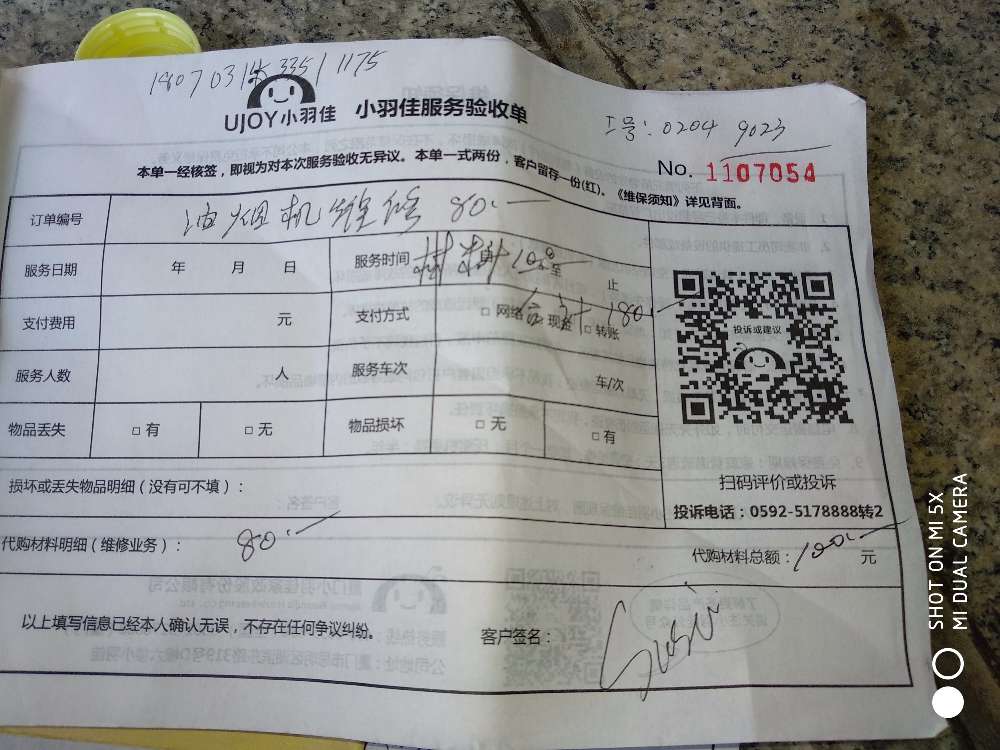 UJOY小羽佳 小羽佳服务验收单
工号：0204 9023
No. 1107054
本单一经核签，即视为对本次服务验收无异议。本单一式两份，客户留存一份(红)。《维保须知》详见背面。
订单编号 油烟机维修 80.—
服务日期 年 月 日 服务时间 至 止
支付费用 元 支付方式 □ 网络 □ 现金 □ 转账
合计 180.—
服务人数 人 服务车次 车/次
物品丢失 □ 有 □ 无 物品损坏 □ 无 □ 有
投诉或建议
扫码评价或投诉
投诉电话：0592-5178888转2
损坏或丢失物品明细（没有可不填）：
代购材料明细（维修业务）： 80.—
代购材料总额： 元
以上填写信息已经本人确认无误，不存在任何争议纠纷。
客户签名： Susii
SHOT ON MI 5X
MI DUAL CAMERA